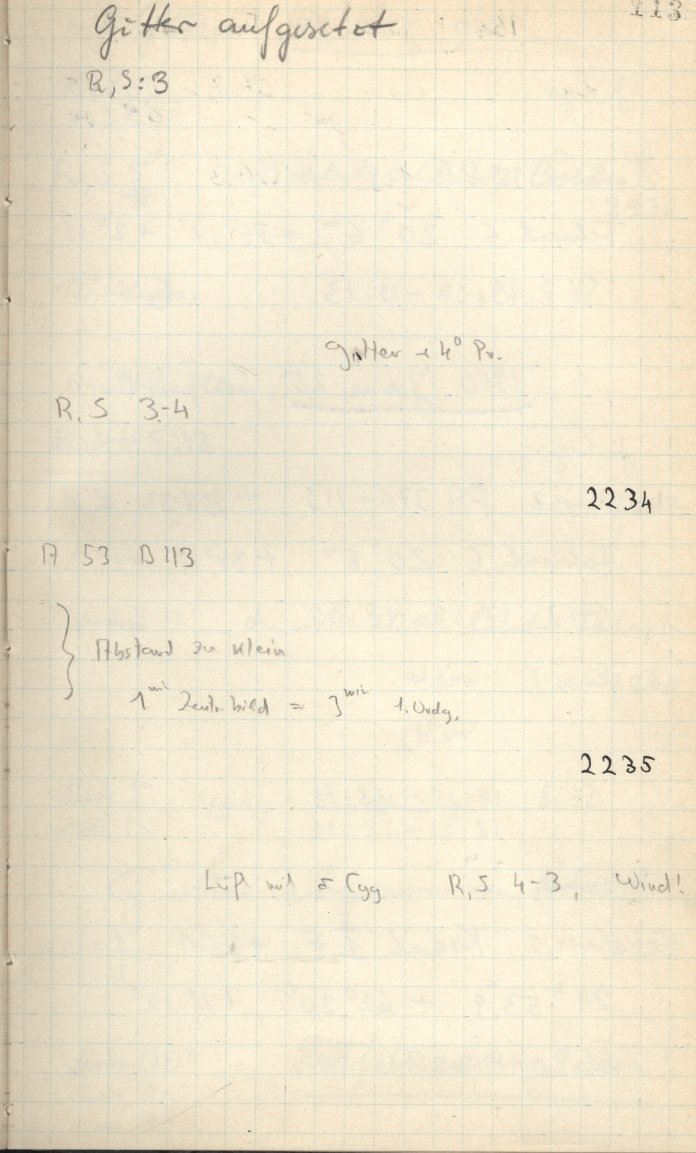 113
Gitter aufgesetzt
R, S: 3
Gitter + 4° Pr.
R, S 3-4
2234
A 53 B 113
Abstand zu klein
1 min Zentr. bild = 3 min 1. Ordg.
2235
Luft mit Cyg R, S 4-3, Wind!